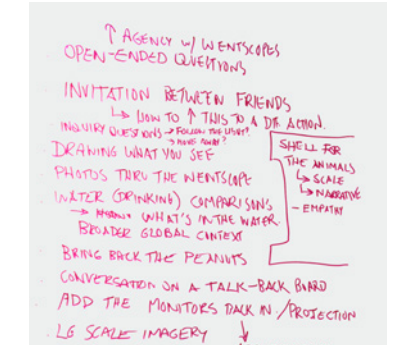 ↑ AGENCY W/ WENTSCOPES
OPEN-ENDED QUESTIONS
INVITATION BETWEEN FRIENDS
↳ HOW TO ↑ THIS TO A DIR. ACTION.
INQUIRY QUESTIONS → FOLLOW THE LIGHT?
→ MOVE AWAY?
DRAWING WHAT YOU SEE
PHOTOS THRU THE WENTSCOPE
WATER (DRINKING) COMPARISONS
→ WHAT'S IN THE WATER.
BROADER GLOBAL CONTEXT
BRING BACK THE PEANUTS
CONVERSATION ON A TALK-BACK BOARD
ADD THE MONITORS BACK IN /PROJECTION
LG SCALE IMAGERY
SHELL FOR
THE ANIMALS
↳ SCALE
↳ NARRATIVE
- EMPATHY